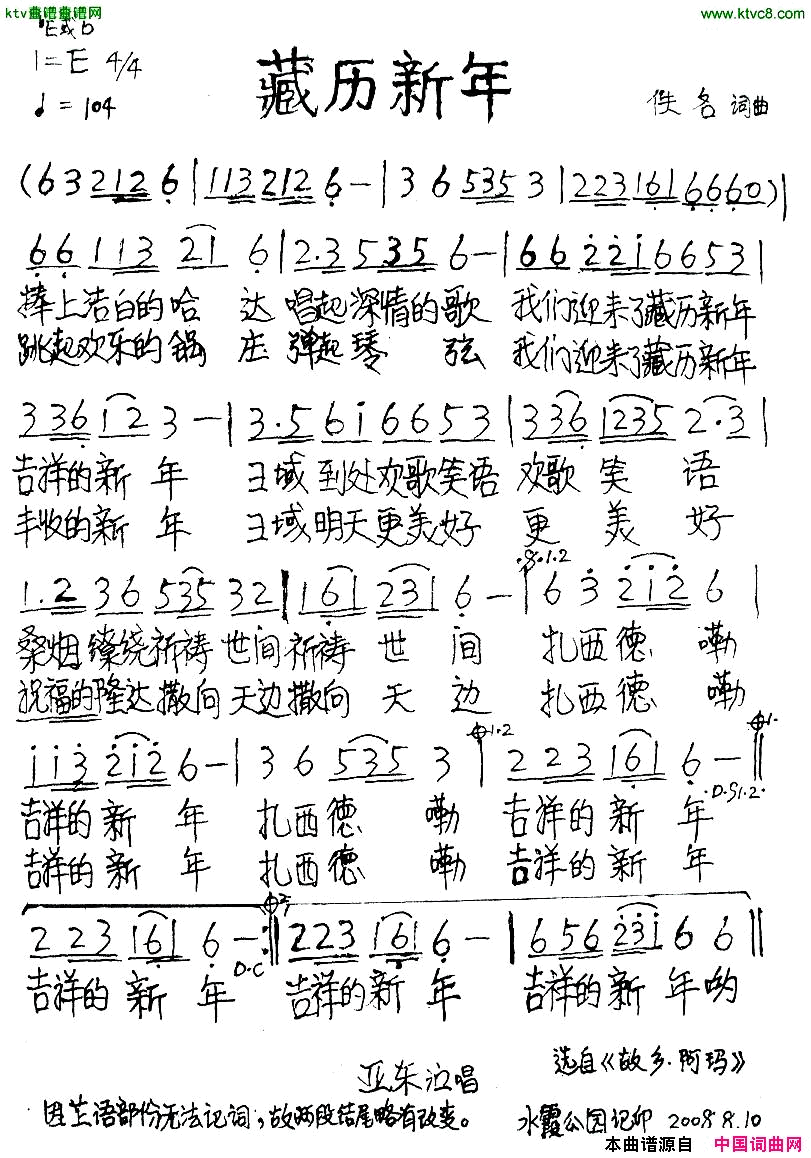 ktv曲谱曲谱网
www.ktvc8.com
1=E 4/4
♩=104
藏历新年
佚名 词曲
(6 3 2 1 2 6 | 1 1 3 2 1 2 6 – | 3 6 5 3 5 3 | 2 2 3 1 6 1 6 6 6 0) |
6 6 1 1 3 2 1 6 | 2. 3 5 3 5 6 – | 6 6 2 2 1 6 6 5 3 |
捧上洁白的哈 达 唱起深情的歌 我们迎来了藏历新年
跳起欢乐的锅 庄 弹起琴 弦 我们迎来了藏历新年
3 3 6 1 2 3 – | 3. 5 6 1 6 6 5 3 | 3 3 6 1 2 3 5 2. 3 |
吉祥的新 年 王域到处欢歌笑语 欢歌 笑 语
丰收的新 年 王域明天更美好 更 美 好
1. 2 3 6 5 3 5 3 2 | 1 6 1 2 3 1 6 – | 6 3 2 1 2 6 |
桑烟缭绕祈祷世间祈祷 世 间 扎西德 嘞
祝福的隆达撒向天边撒向 天 边 扎西德 嘞
1 1 3 2 1 2 6 – | 3 6 5 3 5 3 | 2 2 3 1 6 1 6 – ‖
D.S1.2
吉祥的新 年 扎西德 嘞 吉祥的新 年
吉祥的新 年 扎西德 嘞 吉祥的新 年
2 2 3 1 6 1 6 – :‖ 2 2 3 1 6 1 6 – | 6 5 6 2 3 1 6 6 ‖
D.C
吉祥的新 年 吉祥的新 年 吉祥的新 年哟
选自《故乡·阿玛》
亚东演唱
因兰语部份无法记词，故两段结尾略有改变。 水霞公园记 2008 8.10
本曲谱源自 中国词曲网